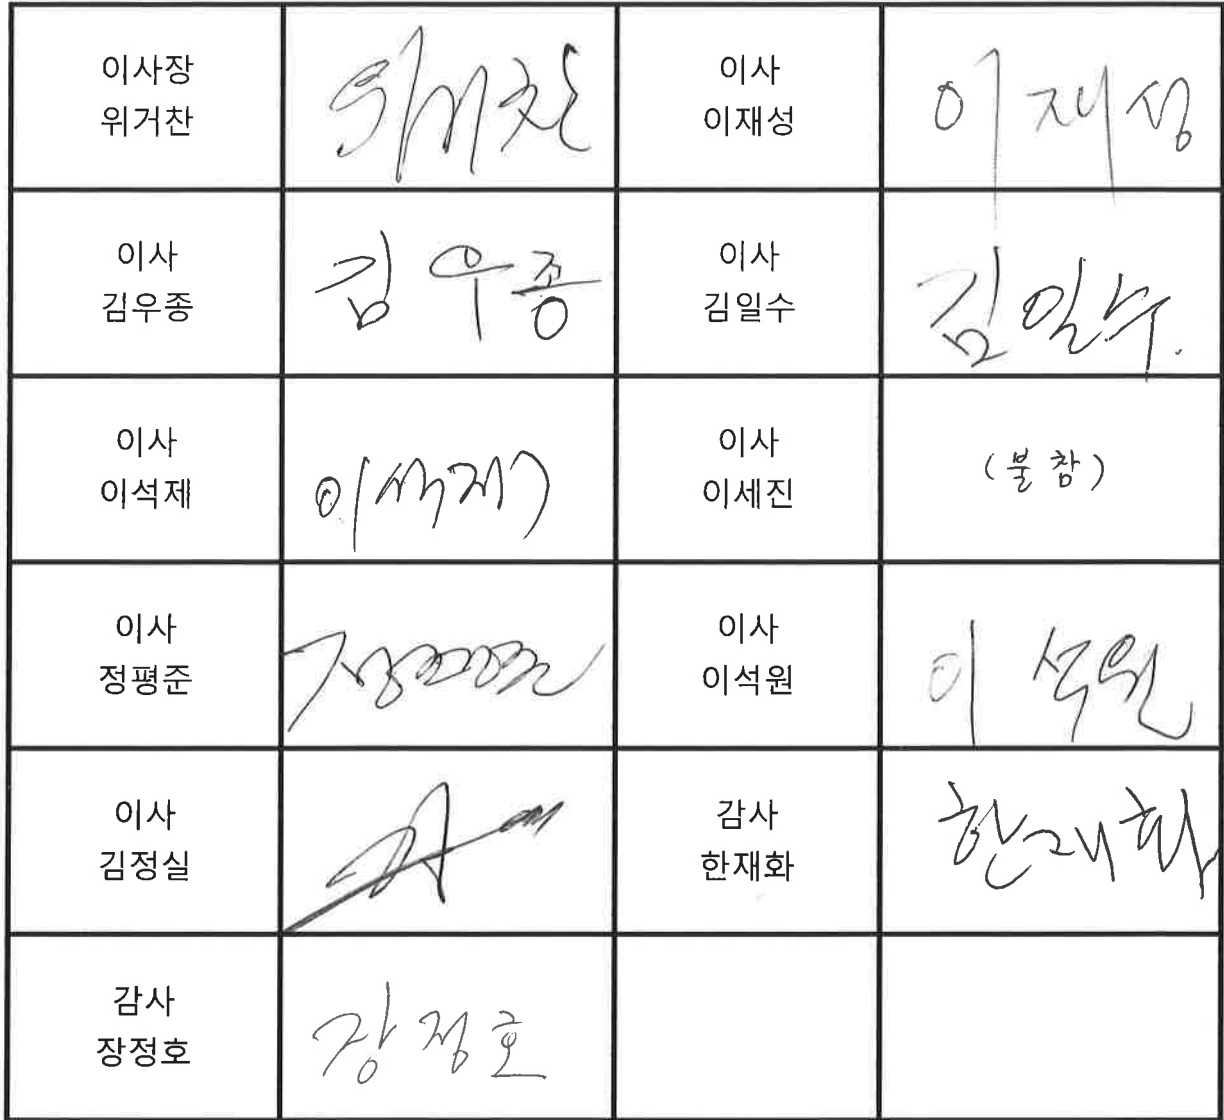 이사장
위거찬
위거찬
이사
이재성
이재성
이사
김우종
김우종
이사
김일수
김일수
이사
이석제
이석제
이사
이세진
(불참)
이사
정평준
정평준
이사
이석원
이석원
이사
김정실
감사
한재화
한재화
감사
장정호
장정호